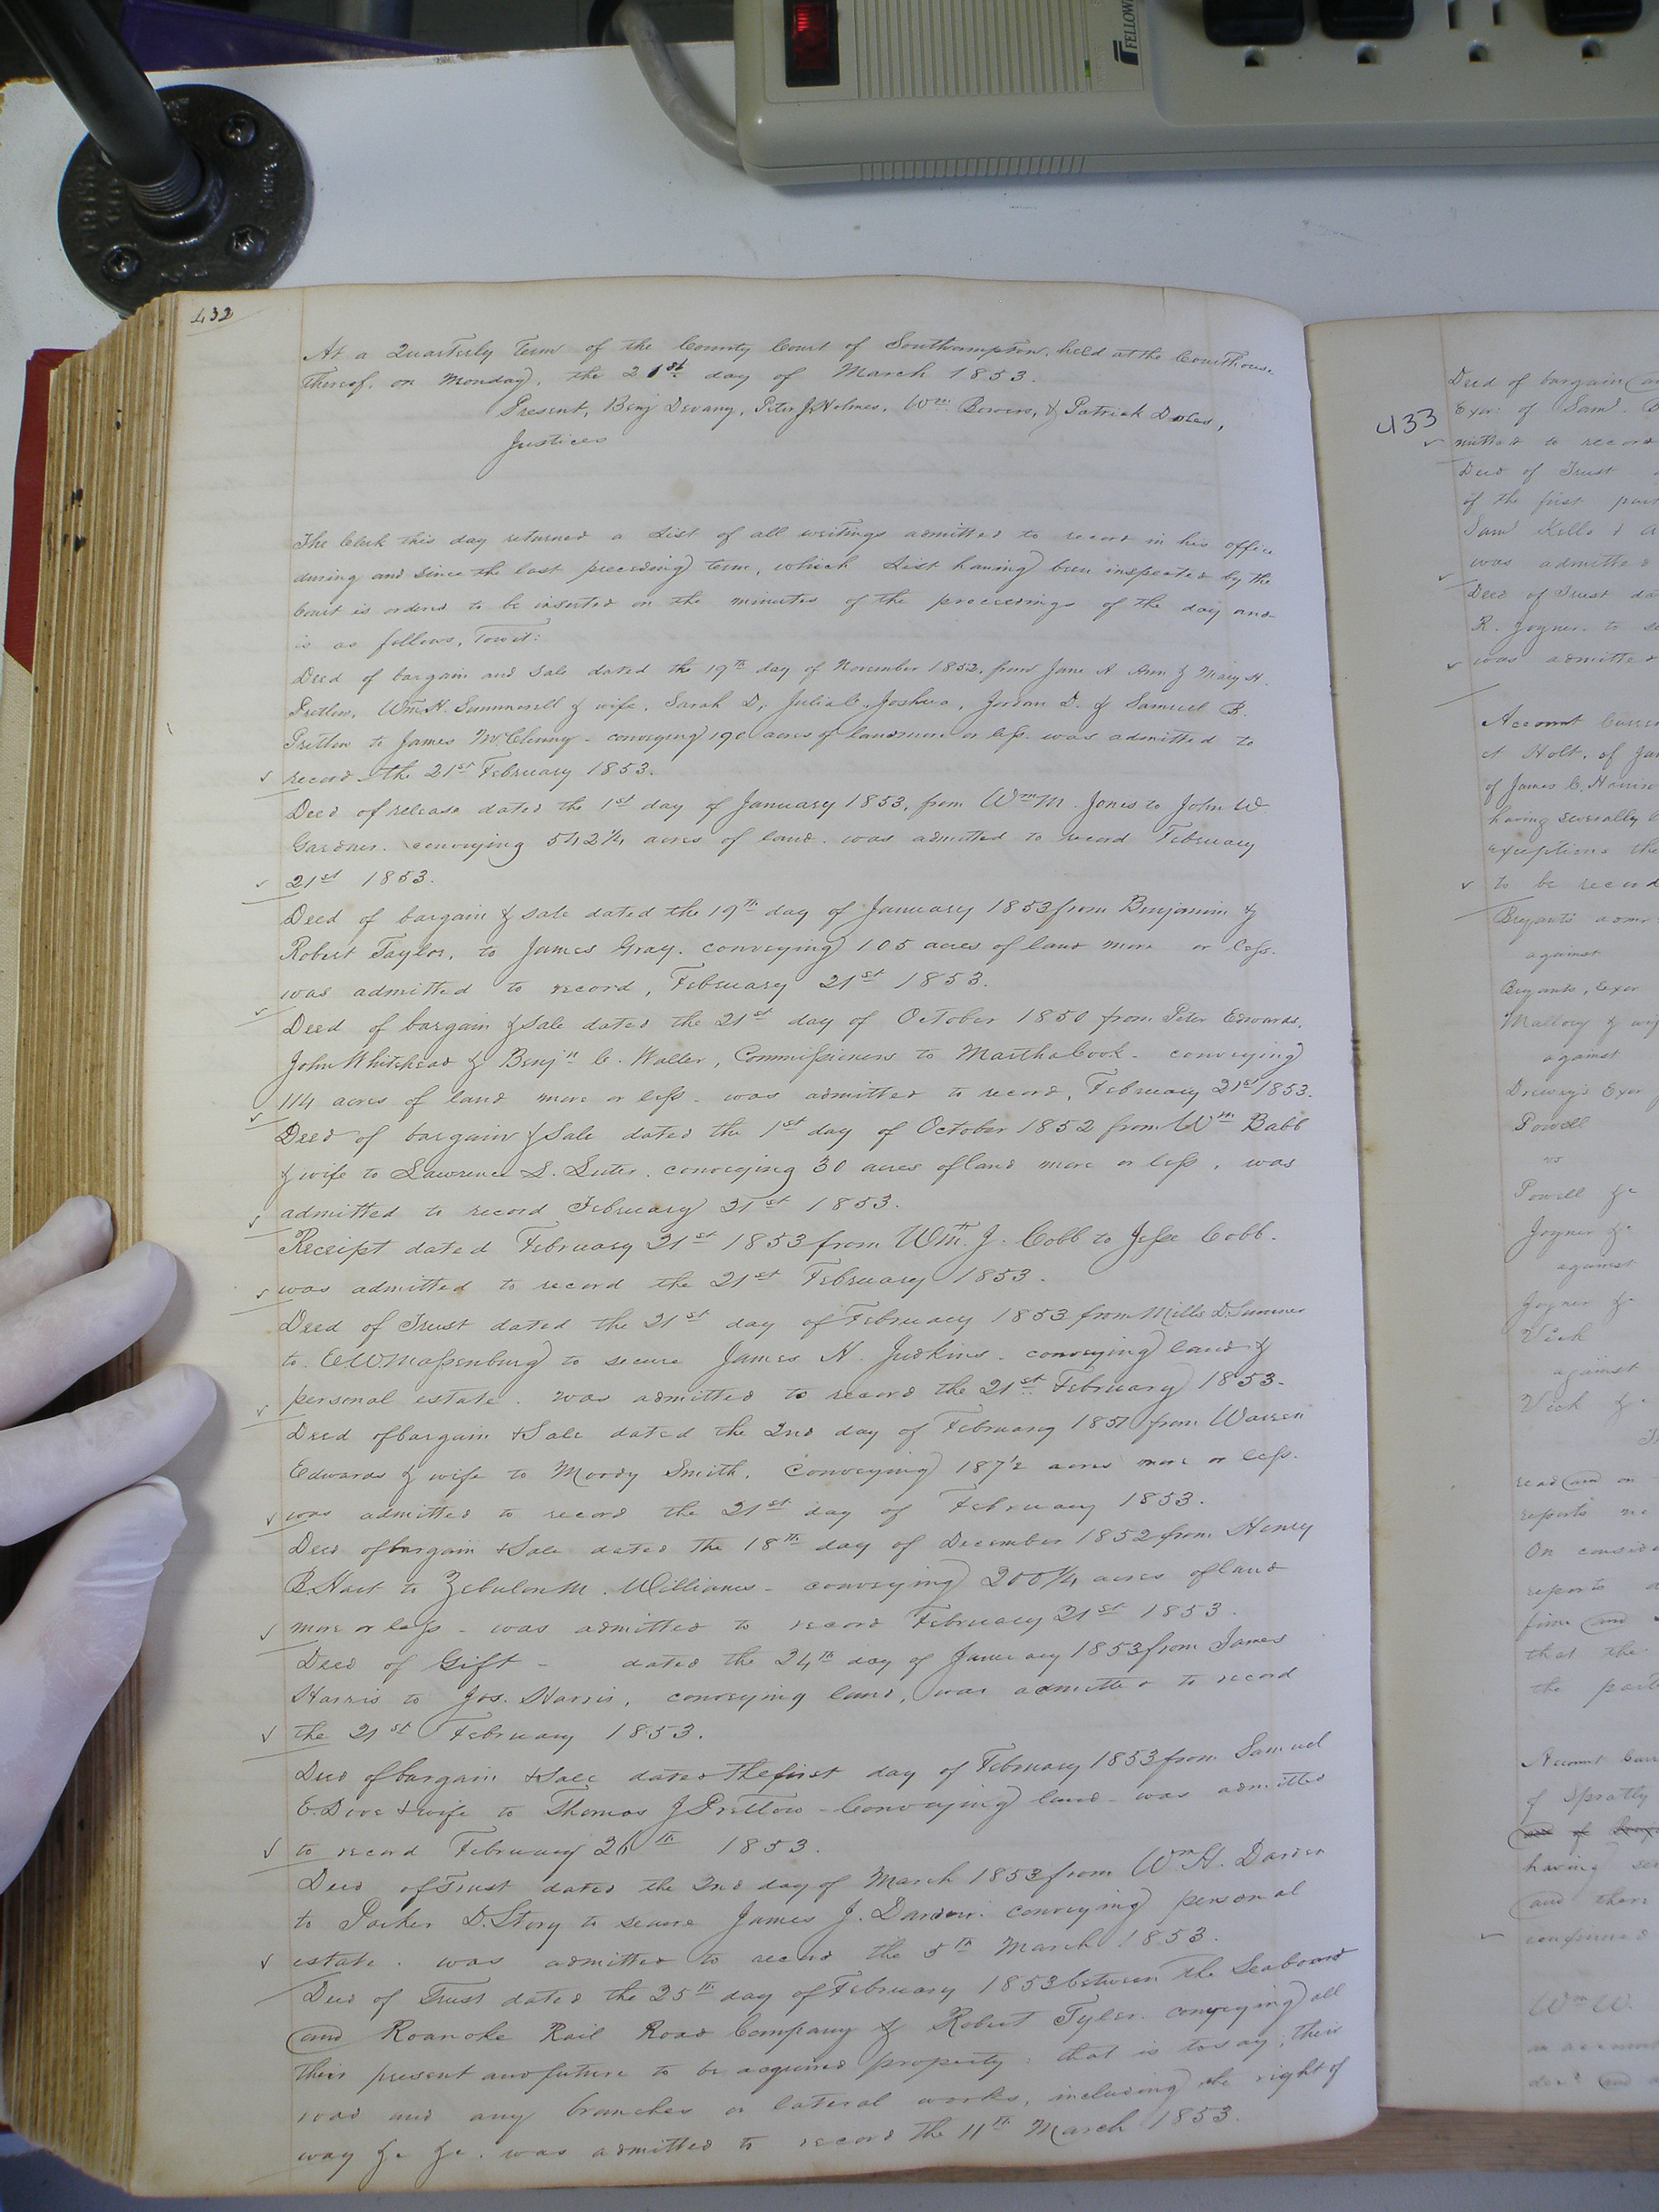 FELLOWE
432
At a Quarterly Term of the County Court of Southampton, held at the Courthouse
thereof, on Monday, the 21st day of March 1853.
Present, Benj Devany, Peter J Holmes, Wm Bowers, & Patrick Doles,
Justices
The Clerk this day returned a List of all writings admitted to record in his office
during and since the last preceding term, which List having been inspected by the
Court is ordered to be inserted on the minutes of the proceedings of the day and
is as follows, Towit:
Deed of bargain and sale dated the 19th day of November 1852. from Jane A Ann & Mary H.
Pretlow, Wm H. Summerell & wife, Sarah D, Julia C., Joshua, Jordan D. & Samuel B.
Pretlow to James McClenny - conveying 190 acres of land more or less. was admitted to
record the 21st February 1853.
Deed of release dated the 1st day of January 1853, from Wm M. Jones to John W.
Gardner. conveying 542 1/4 acres of land. was admitted to record February
21st 1853.
Deed of bargain & sale dated the 19th day of January 1853 from Benjamin &
Robert Taylor, to James Gray. conveying 105 acres of land more or less.
was admitted to record, February 21st 1853.
Deed of bargain & Sale dated the 21st day of October 1850 from Peter Edwards,
John Whitehead & Benjn C. Waller, Commissioners to Martha Cook - conveying
114 acres of land more or less - was admitted to record, February 21st 1853.
Deed of bargain & Sale dated the 1st day of October 1852 from Wm Babb
& wife to Lawrence S. Luter. conveying 30 acres of land more or less, was
admitted to record February 21st 1853.
Receipt dated February 21st 1853 from Wm. J. Cobb to Jesse Cobb.
was admitted to record the 21st February 1853.
Deed of Trust dated the 21st day of February 1853 from Mills D Sumner
to. Massenburg to secure James H. Judkins - conveying land &
personal estate. was admitted to record the 21st February 1853.
Deed of bargain & Sale dated the 2nd day of February from Warren
Edwards & wife to Moody Smith, Conveying 187 1/2 acres more or less.
was admitted to record the 21st day of February 1853.
Deed of bargain & Sale dated the 18th day of December 1852 from Henry
B. Hart to Zebulon M. Williams - conveying 200 1/4 acres of land
more or less - was admitted to record February 21st 1853.
Deed of Gift - dated the 24th day of January 1853 from James
Harris to Jos. Harris, conveying land, was admitted to record
the 21st February 1853.
Deed of bargain & Sale dated the first day of February 1853 from Samuel
E. & wife to Thomas J Pretlow - Conveying land - was admitted
to record February 26th 1853.
Deed of Trust dated the 2nd day of March 1853 from Wm H. Darden
to Parker D. Story to secure James J. Darden. conveying personal
estate. was admitted to record the 5th March 1853.
Deed of Trust dated the 25th day of February 1853 between the Seaboard
and Roanoke Rail Road Company & Robert Tyler. conveying all
their present and future to be acquired property: that is to say; their
road and any branches or lateral works, including the right of
way &c &c. was admitted to record the 11th March 1853.
433
Deed of bargain
Exor: of Saml.
mitted to record
Deed of Trust
of the first part
Saml Kello &
was admitted
Deed of Trust
R. Joyner. to
was admitted
Account
Holt, of
of James C. Harris
having severally
exceptions the
to be record
Bryants admr
against
Bryants, Exor
Mallory & wife
against
Drewry's Exor
Powell
vs
Powell &c
Joyner &c
against
Joyner &c
Vick
against
Vick &c
read and on
reports
On consid
reports
fine and
that the
the part
Account
of Spratly
having
and there
confirmed
Wm W.